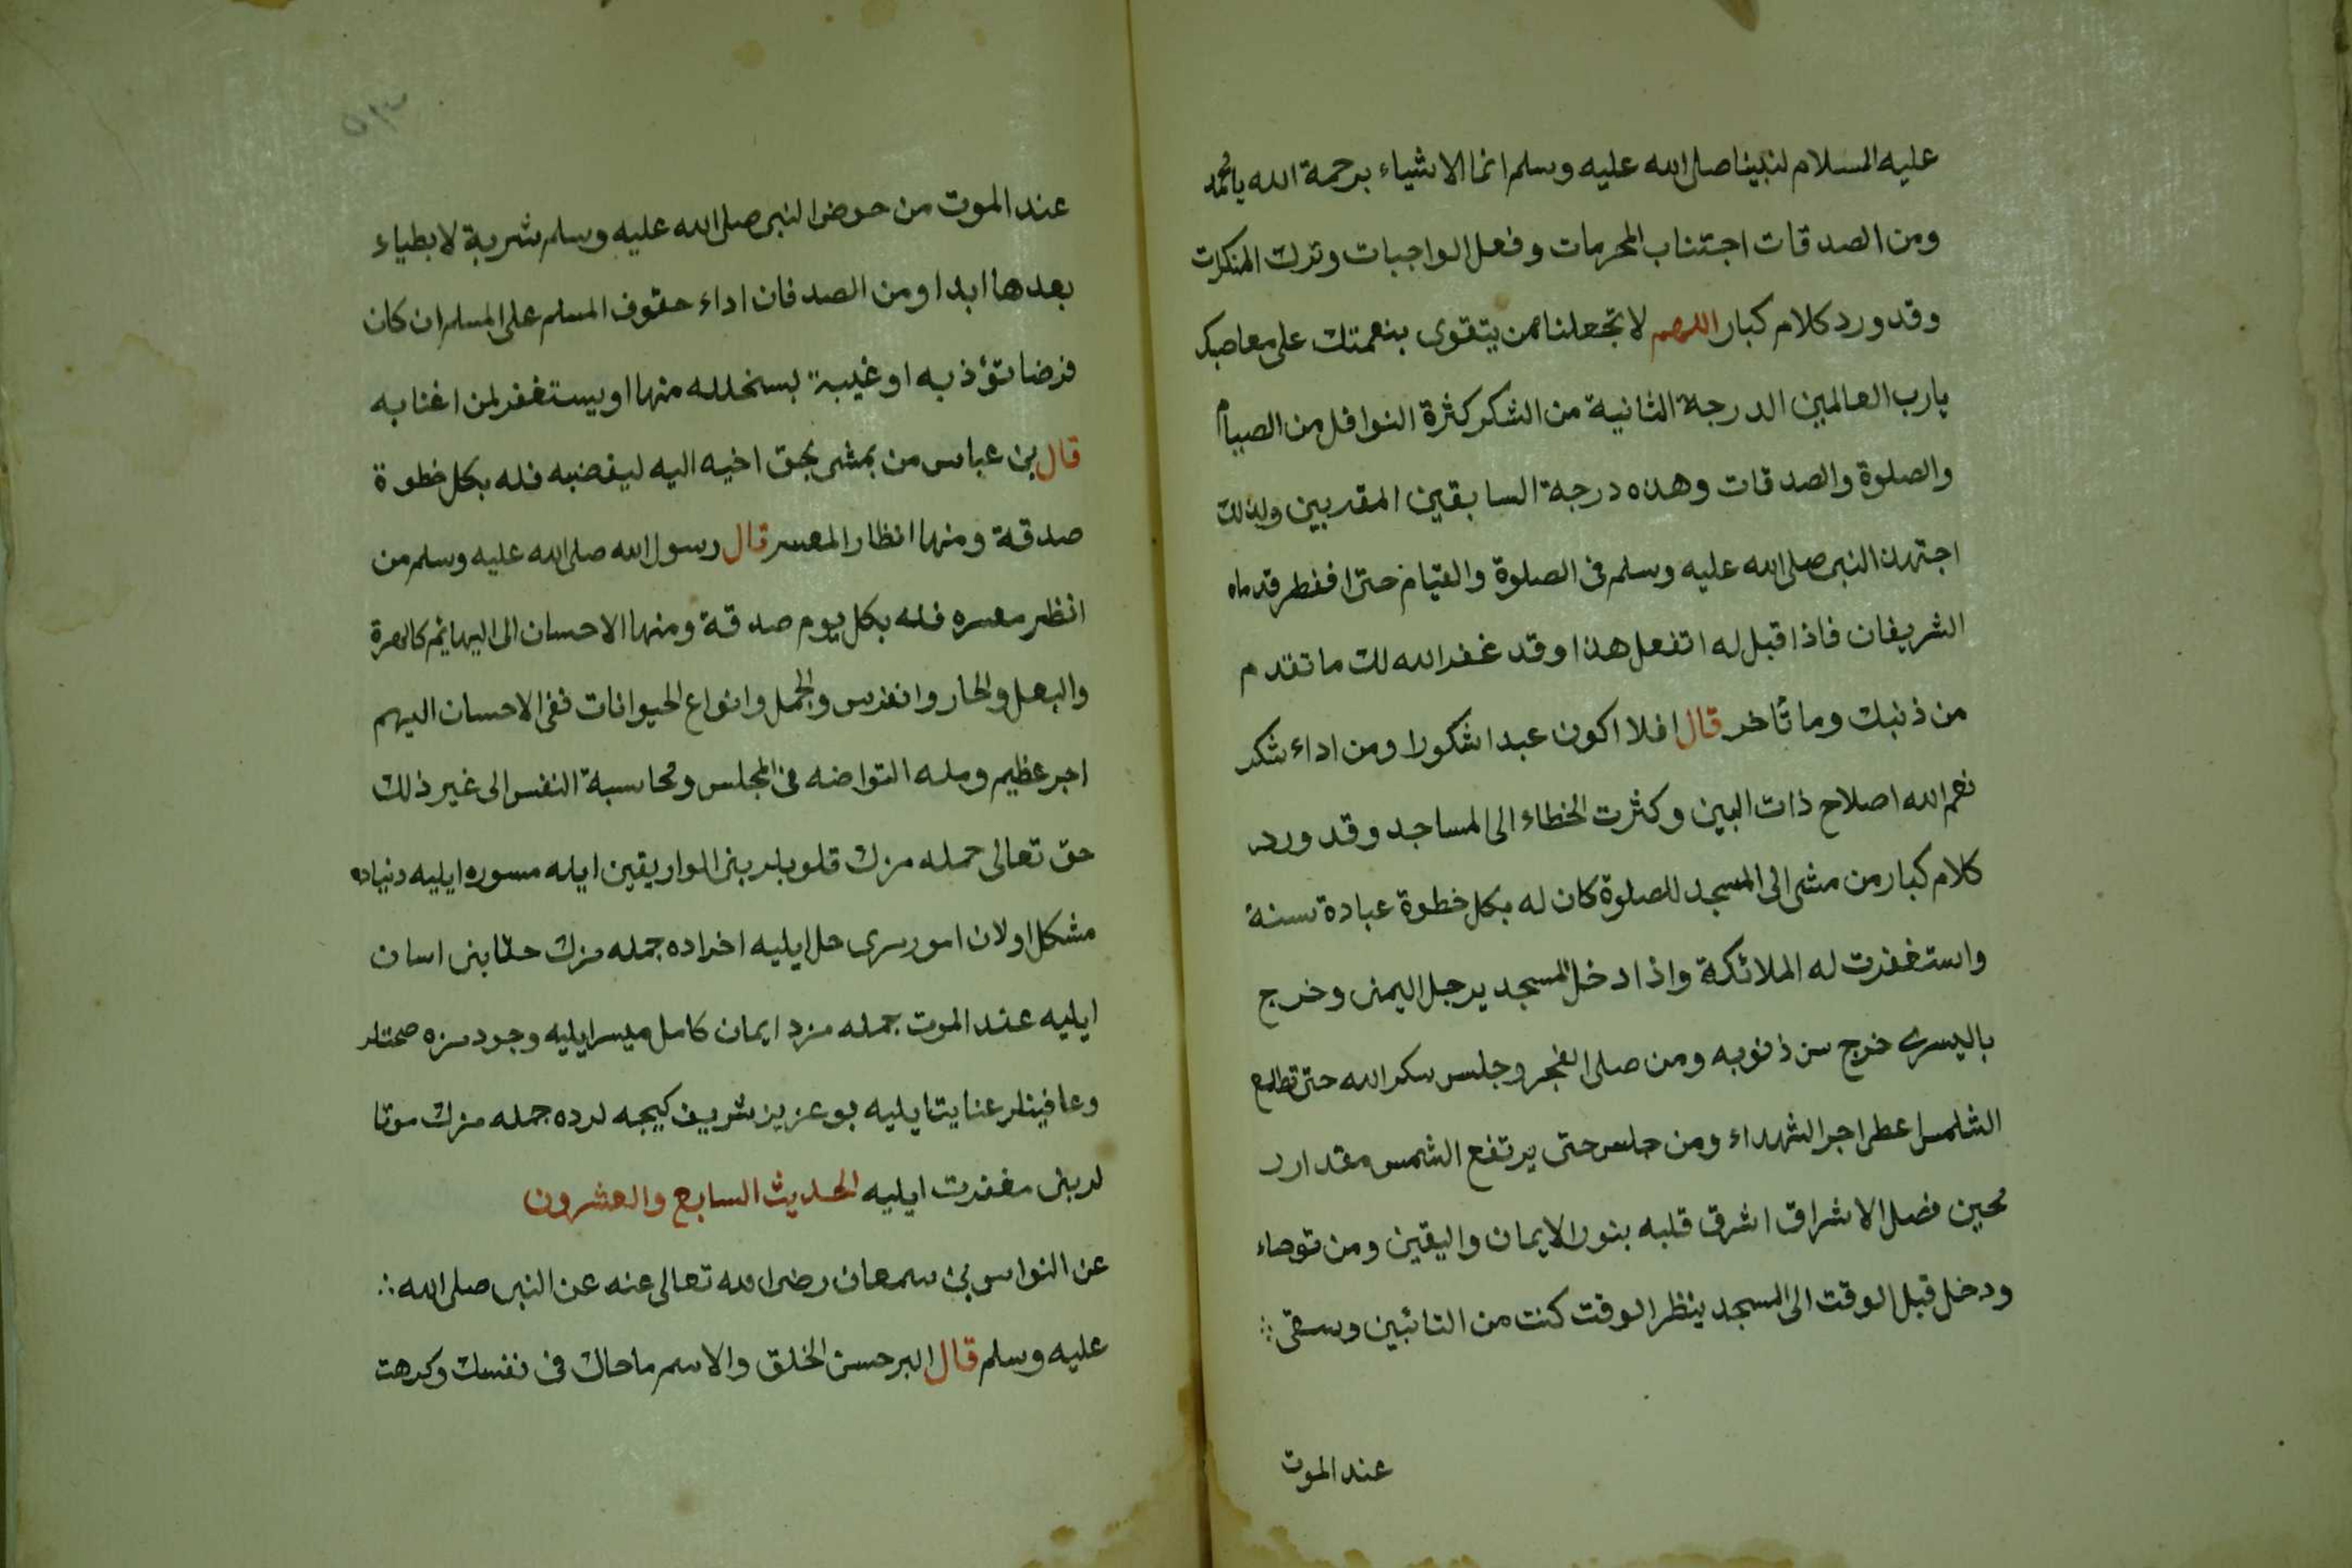 عليه السلام لنبينا صلى الله عليه وسلم انما الاشياء برحمة الله يا محمد
ومن الصدقات اجتناب المحرمات وفعل الواجبات وترك المنكرات
وقد ورد كلام كبار اللهم لا تجعلنا ممن يتقوى بنعمتك على معاصيك
يارب العالمين الدرجة الثانية من الشكر كثرة النوافل من الصيام
والصلوة والصدقات وهذه درجة السابقين المقربين ولذلك
اجتهدن النبى صلى الله عليه وسلم فى الصلوة والقيام حتى افقطر قدماه
الشريفان فاذا قيل له اتفعل هذا وقد غفر الله لك ما تقدم
من ذنبك وما تأخر قال افلا اكون عبدا شكورا ومن اداء شكر
نعم الله اصلاح ذات البين وكثرت الخطاء الى المساجد وقد ورد
كلام كبار من مشى الى المسجد للصلوة كان له بكل خطوة عبادة سنة
واستغفرت له الملائكة واذا دخل المسجد برجل اليمنى وخرج
باليسرى خرج من ذنوبه ومن صلى الفجر وجلس سكر الله حتى تطلع
الشلمس اعطى اجر الشهداء ومن جلس حتى يرتفع الشمس مقدار
محين فضل الاشراق اشرق قلبه بنور الايمان واليقين ومن توضاء
ودخل قبل الوقت الى المسجد ينظر الوقت كنت من التائبين وسقى
عند الموت
عند الموت من حوض النبى صلى الله عليه وسلم شربة لا يطياء
بعدها ابدا ومن الصدقان اداء حقوق المسلم على المسلم ان كان
فرضا تؤذ به او غيبة بسنحلله منها او يستغفر لمن اغتابه
قال بن عباس من يمشى بحق اخيه اليه ليقضيه فله بكل خطوة
صدقة ومنها انظار المعسر قال رسول الله صلى الله عليه وسلم من
انظر معسره فله بكل يوم صدقة ومنها الاحسان الى البهايم كالهرة
والبعل والحمار وانفرس والجمل وانواع الحيوانات ففى الاحسان اليهم
اجر عظيم ومله التواضه فى المجلس ومحاسبة النفس الى غير ذلك
حق تعالى جمله مزك قلوبلربنى الوار يقين ايله مسوره ايليه دنياده
مشكل اولان امورىرى حل ايليه اخراده جمله مزك حسابنى اسان
ايليه عند الموت جمله مزه ايمان كامل ميسر ايليه وجودمزه صحتلر
وعافيتلر عنايت ايليه بو عزيز شريف كيجه لرده جمله مزك موتا
لربنى مغفرت ايليه الحديث السابع والعشرون
عن النواس بن سمعان رضى الله تعالى عنه عن النبى صلى الله
عليه وسلم قال البر حسن الخلق والاسم ماحاك فى نفسك وكرهت